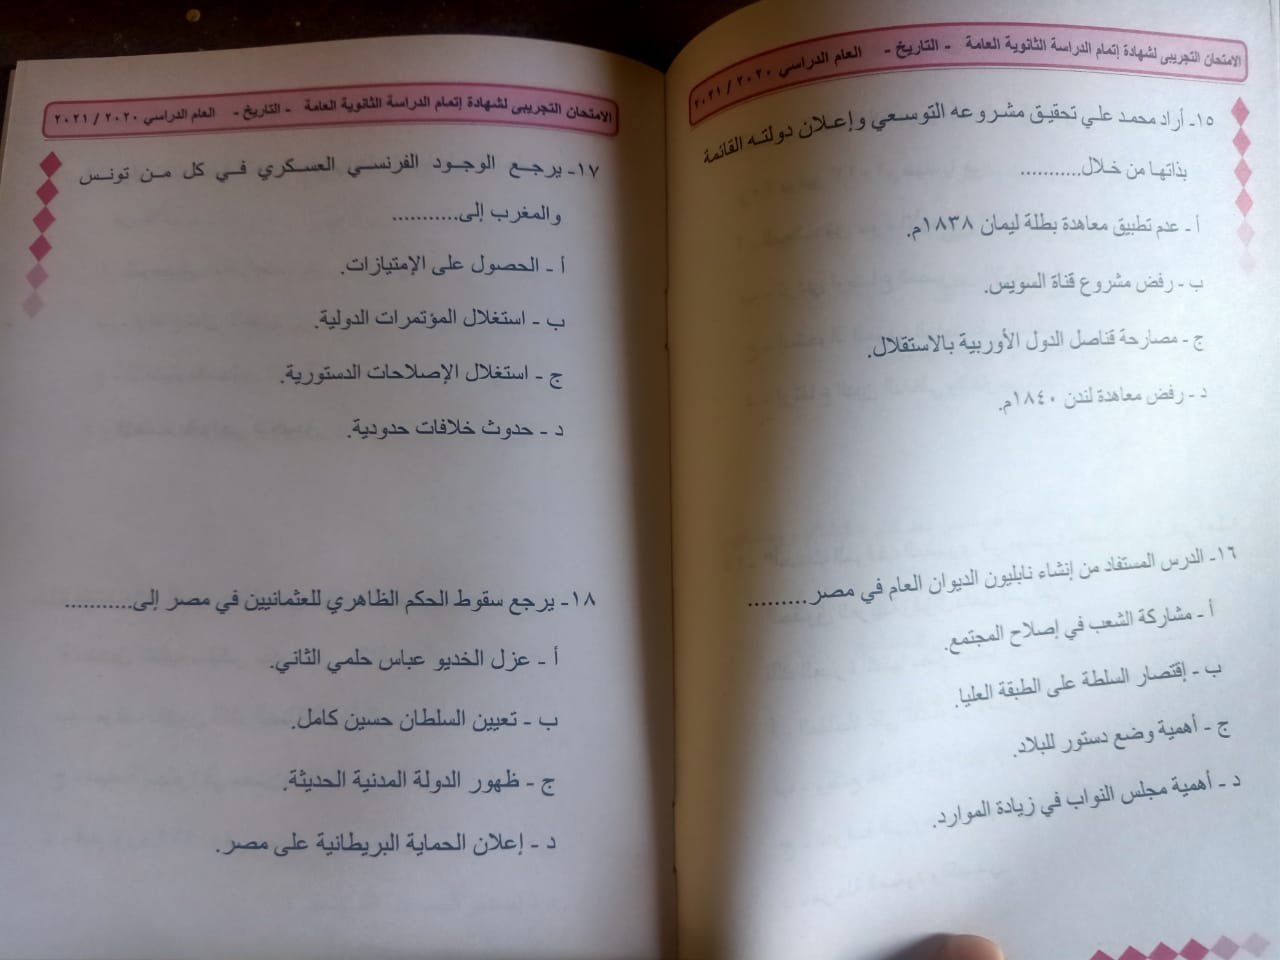 الامتحان التجريبى لشهادة إتمام الدراسة الثانوية العامة - التاريخ - العام الدراسي ٢٠٢٠ / ٢٠٢١
١٥- أراد محمد علي تحقيق مشروعه التوسعي وإعلان دولته القائمة
بذاتها من خلال...........
أ - عدم تطبيق معاهدة بطلة ليمان ١٨٣٨م.
ب - رفض مشروع قناة السويس.
ج - مصارحة قناصل الدول الأوربية بالاستقلال.
د - رفض معاهدة لندن ١٨٤٠م.
١٦- الدرس المستفاد من إنشاء نابليون الديوان العام في مصر.........
أ - مشاركة الشعب في إصلاح المجتمع.
ب - إقتصار السلطة على الطبقة العليا.
ج - أهمية وضع دستور للبلاد.
د - أهمية مجلس النواب في زيادة الموارد.
الامتحان التجريبى لشهادة إتمام الدراسة الثانوية العامة - التاريخ - العام الدراسي ٢٠٢٠ / ٢٠٢١
١٧- يرجع الوجود الفرنسي العسكري في كل من تونس
والمغرب إلى...........
أ - الحصول على الإمتيازات.
ب - استغلال المؤتمرات الدولية.
ج - استغلال الإصلاحات الدستورية.
د - حدوث خلافات حدودية.
١٨- يرجع سقوط الحكم الظاهري للعثمانيين في مصر إلى...........
أ - عزل الخديو عباس حلمي الثاني.
ب - تعيين السلطان حسين كامل.
ج - ظهور الدولة المدنية الحديثة.
د - إعلان الحماية البريطانية على مصر.